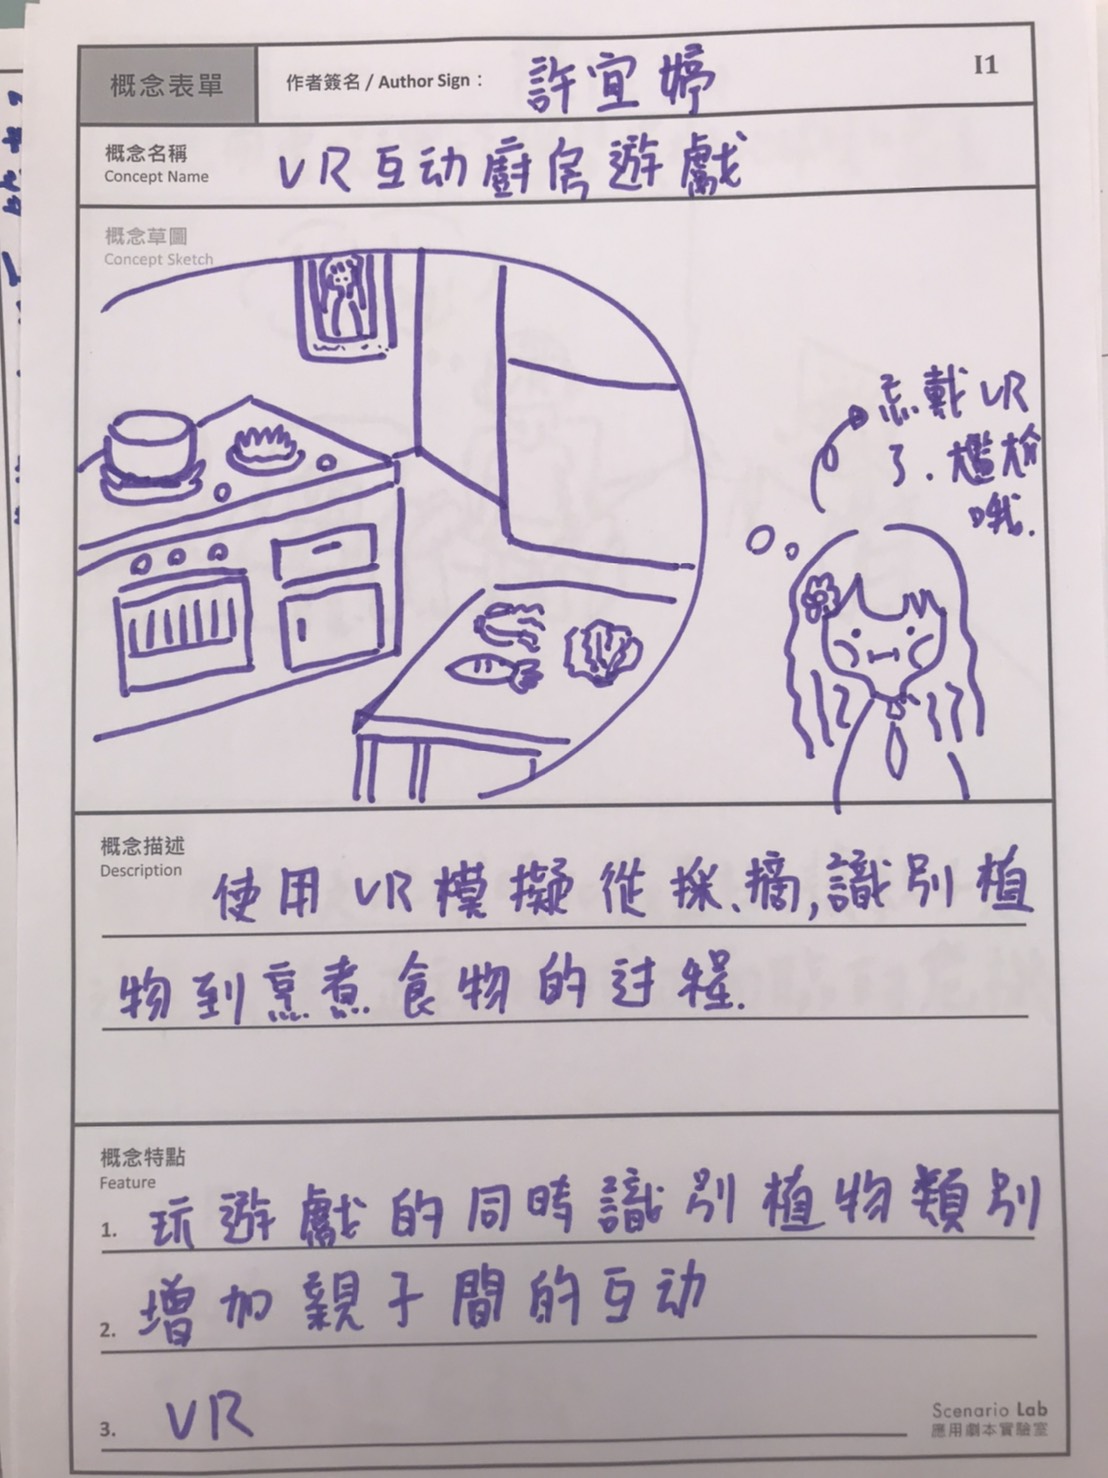 概念表單
作者簽名 / Author Sign：
許宜婷
I1
概念名稱
Concept Name
VR互动廚房遊戲
概念草圖
Concept Sketch
忘戴VR
了.尴尬
哦.
概念描述
Description
使用VR模擬從採、摘,識別植
物到烹煮食物的过程.
概念特點
Feature
1. 玩遊戲的同時識別植物類別
2. 增加親子間的互动
3. VR
Scenario Lab
應用劇本實驗室